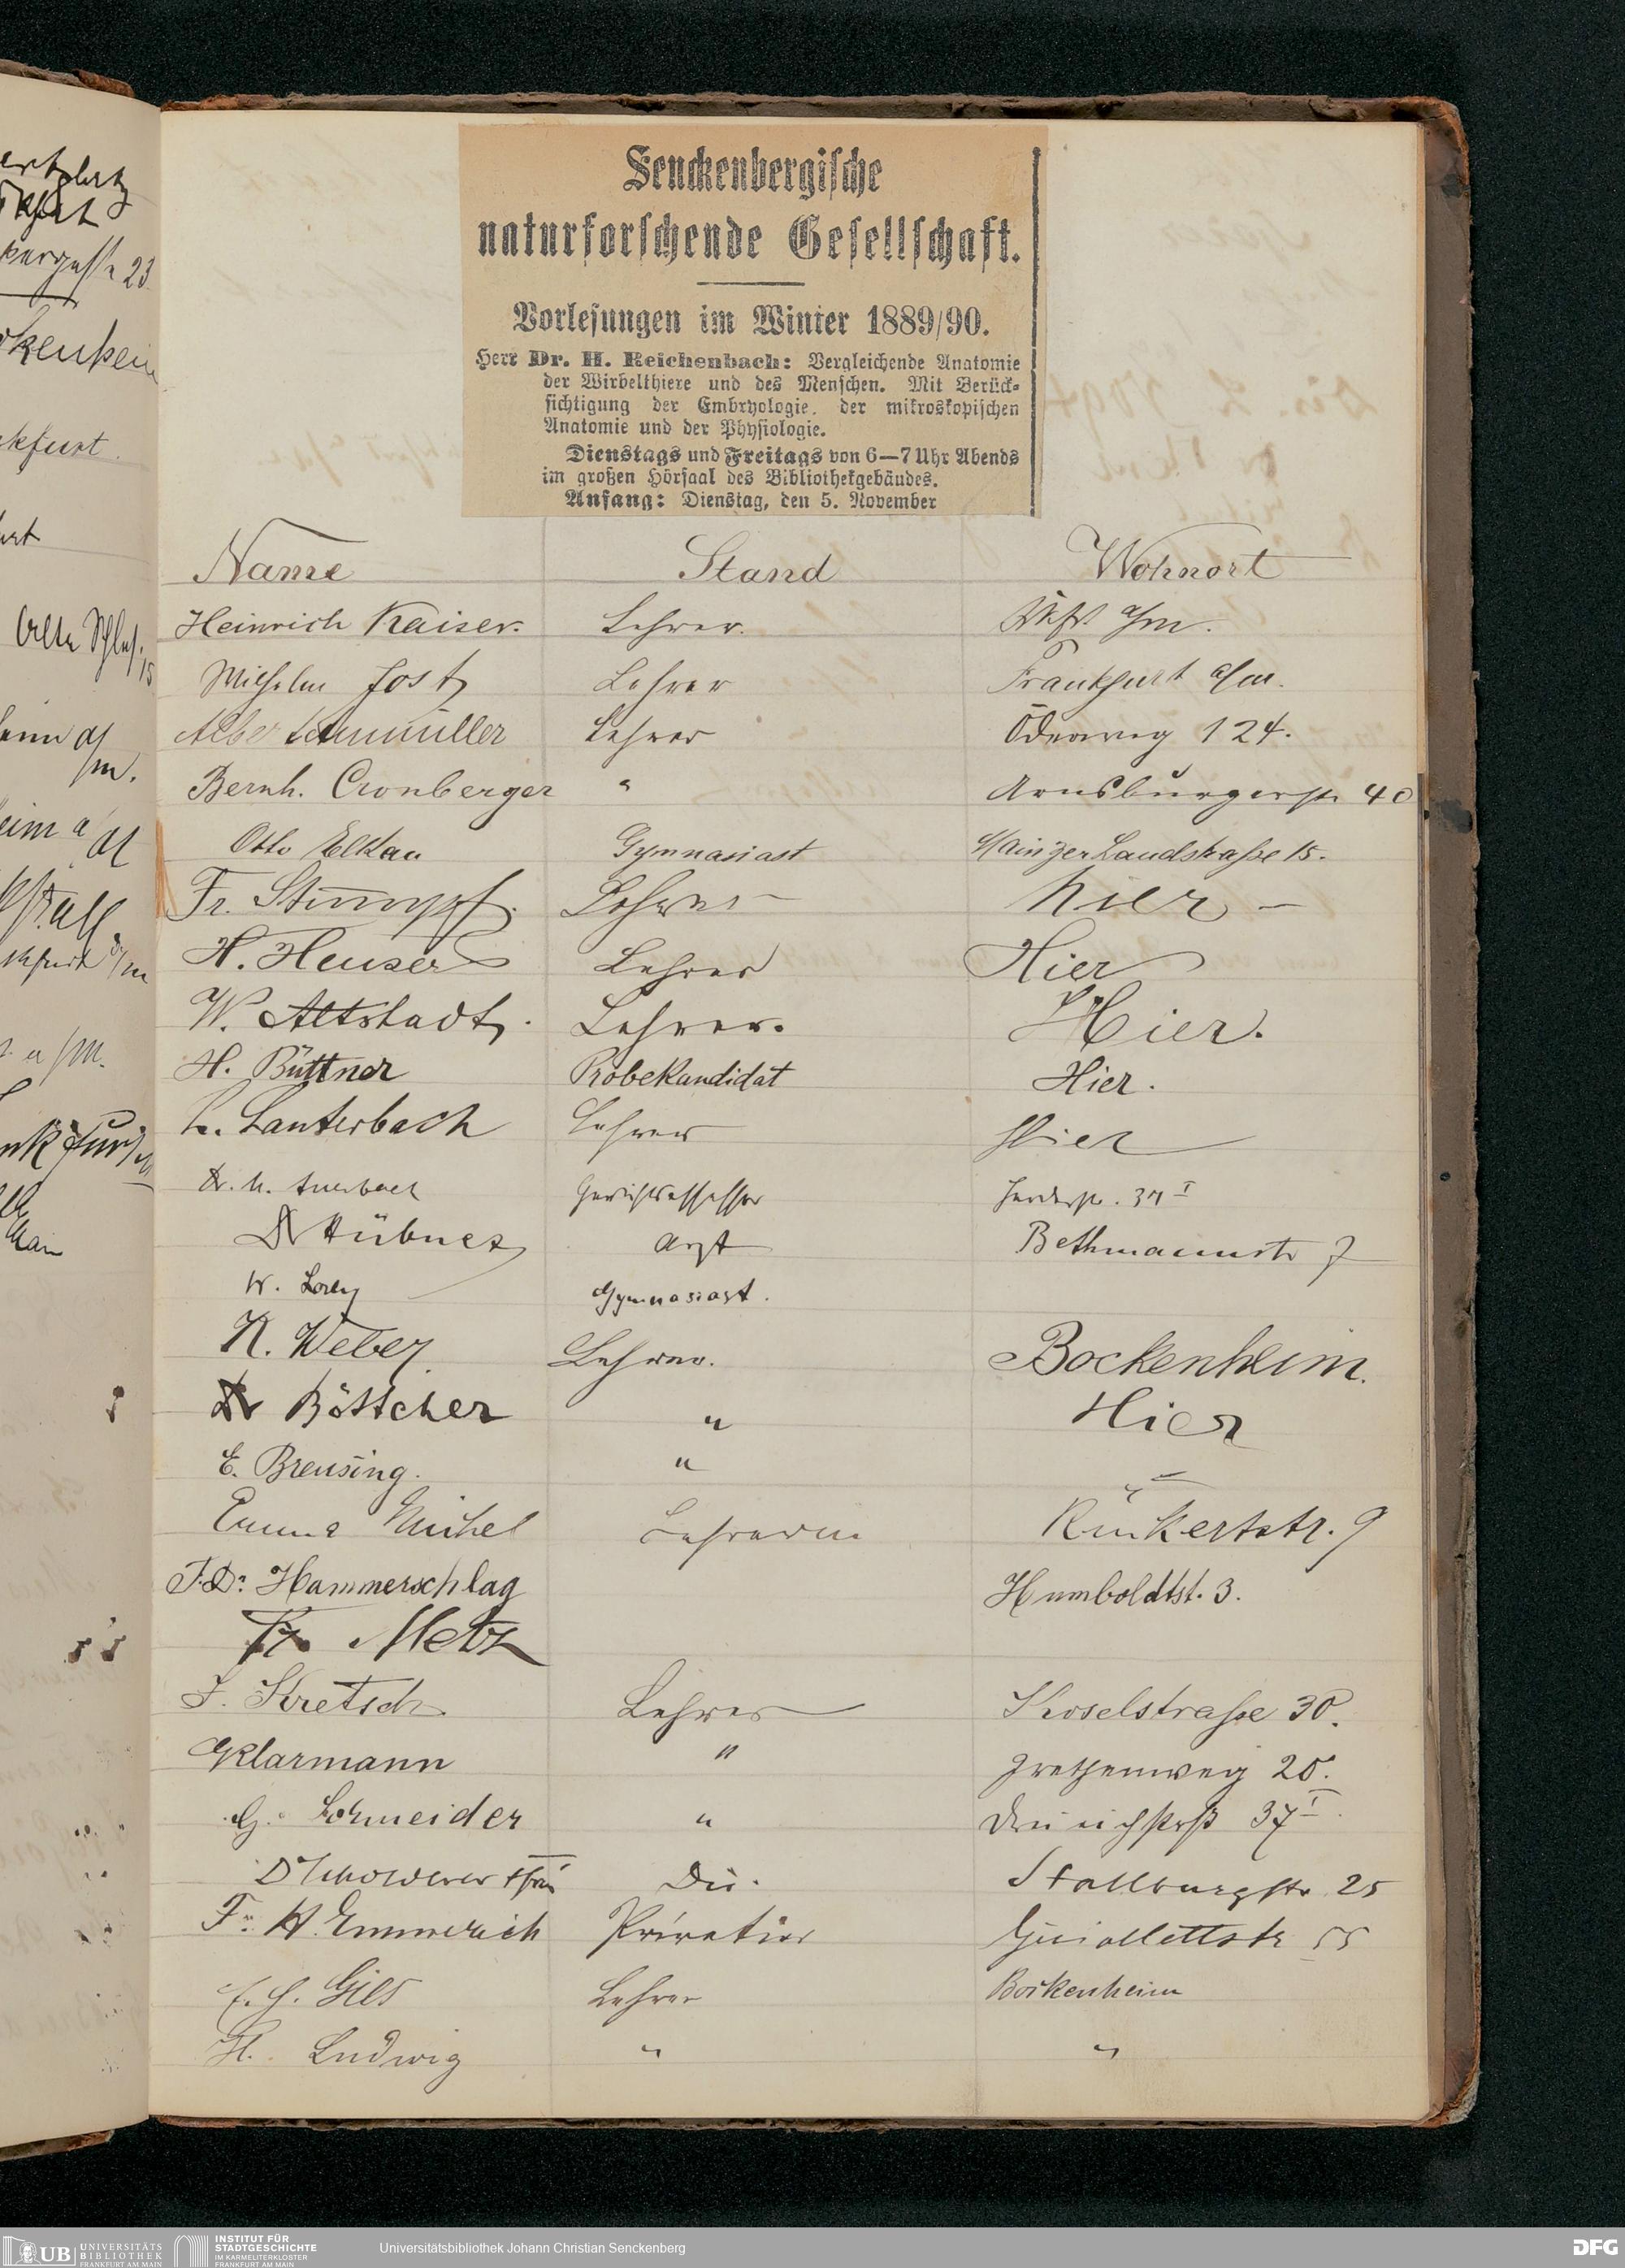 Senckenbergische
naturforschende Gesellschaft.
Vorlesungen im Winter 1889/90.
Herr Dr. H. Reichenbach: Vergleichende Anatomie
der Wirbelthiere und des Menschen. Mit Berück-
sichtigung der Embryologie, der mikroskopischen
Anatomie und der Physiologie.
Dienstags und Freitags von 6—7 Uhr Abends
im großen Hörsaal des Bibliothekgebäudes.
Anfang: Dienstag, den 5. November
Name Stand Wohnort
Heinrich Kaiser. Lehrer. a/m.
Wilhelm Jost Lehrer Frankfurt a/m.
Lehrer Öderweg 124.
Bernh. Cronberger " Arnsburgerstr 40
Otto Elkan Gymnasiast Mainzer Landstraße 15.
Fr. Stimmpf. Lehrer hier –
H. Heuser Lehrer Hier
W. Altstadt. Lehrer. Hier.
H. Büttner Probekandidat Hier.
L. Lauterbach Lehrer Hier
Dr. Auerbach Gerichtsassessor
Dr Hübner Arzt Bethmannstr 7
W. Lorey Gymnasiast.
K. Weber Lehrer. Bockenheim.
Dr Böttcher " Hier
E. Breusing. " "
Emma Michel Lehrerin Rückertstr. 9
F. Dr. Hammerschlag Humboldtst. 3.
Fr. Metz
J. Kretsch Lehrer Koselstraße 30.
GKlarmann " Grethenweg 20.
G. Schneider " Dreieichstrß 37 I.
Dir. Stallburgstr 25
Fr. H. Emmerich Privatier Guiollettstr 55
Lehrer Bockenheim
H. Ludwig " "
kergasse 23
ckenheim
kfurt.
UB UNIVERSITÄTS
BIBLIOTHEK
FRANKFURT AM MAIN
INSTITUT FÜR
STADTGESCHICHTE
IM KARMELITERKLOSTER
FRANKFURT AM MAIN
Universitätsbibliothek Johann Christian Senckenberg
DFG